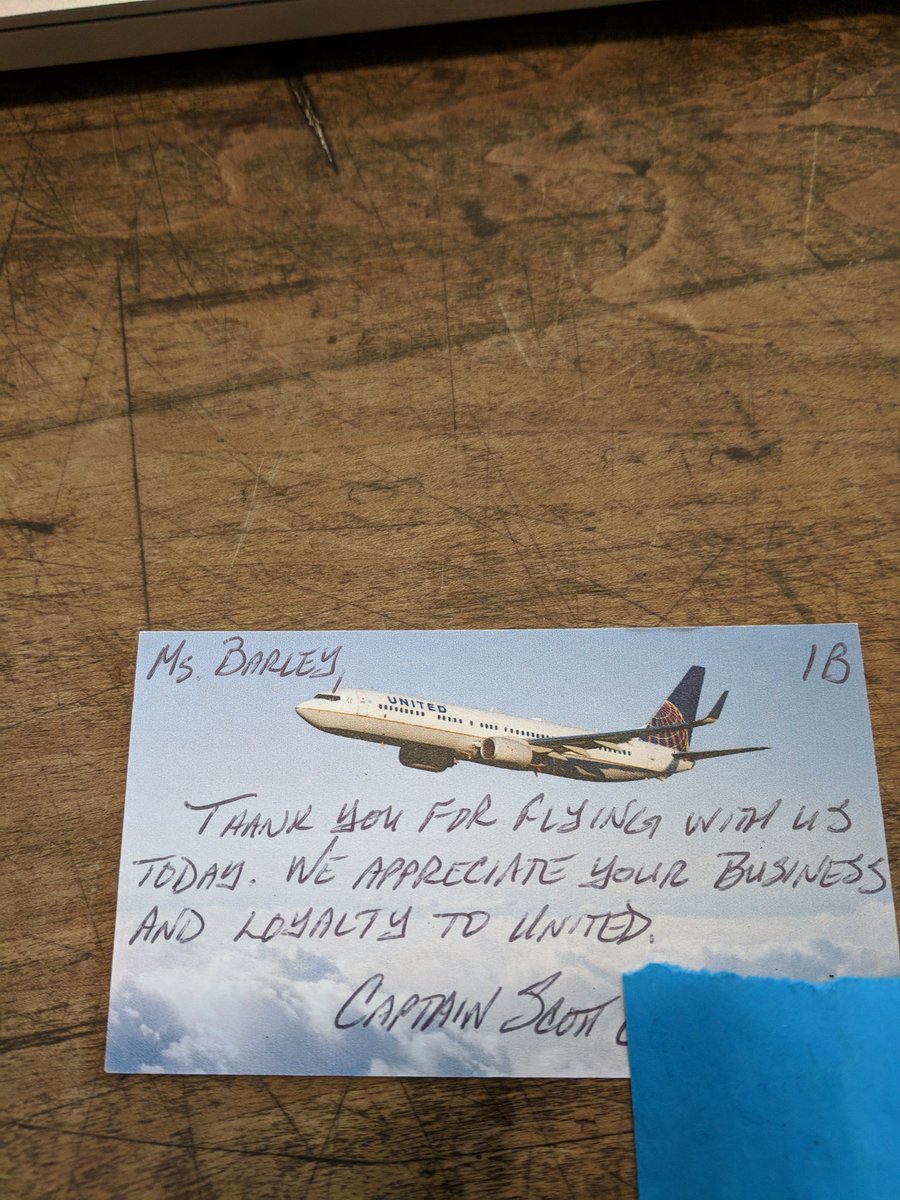 Ms. BARLEY, 1B
UNITED
THANK YOU FOR FLYING WITH US
TODAY. WE APPRECIATE YOUR BUSINESS
AND LOYALTY TO UNITED.
CAPTAIN SCOTT